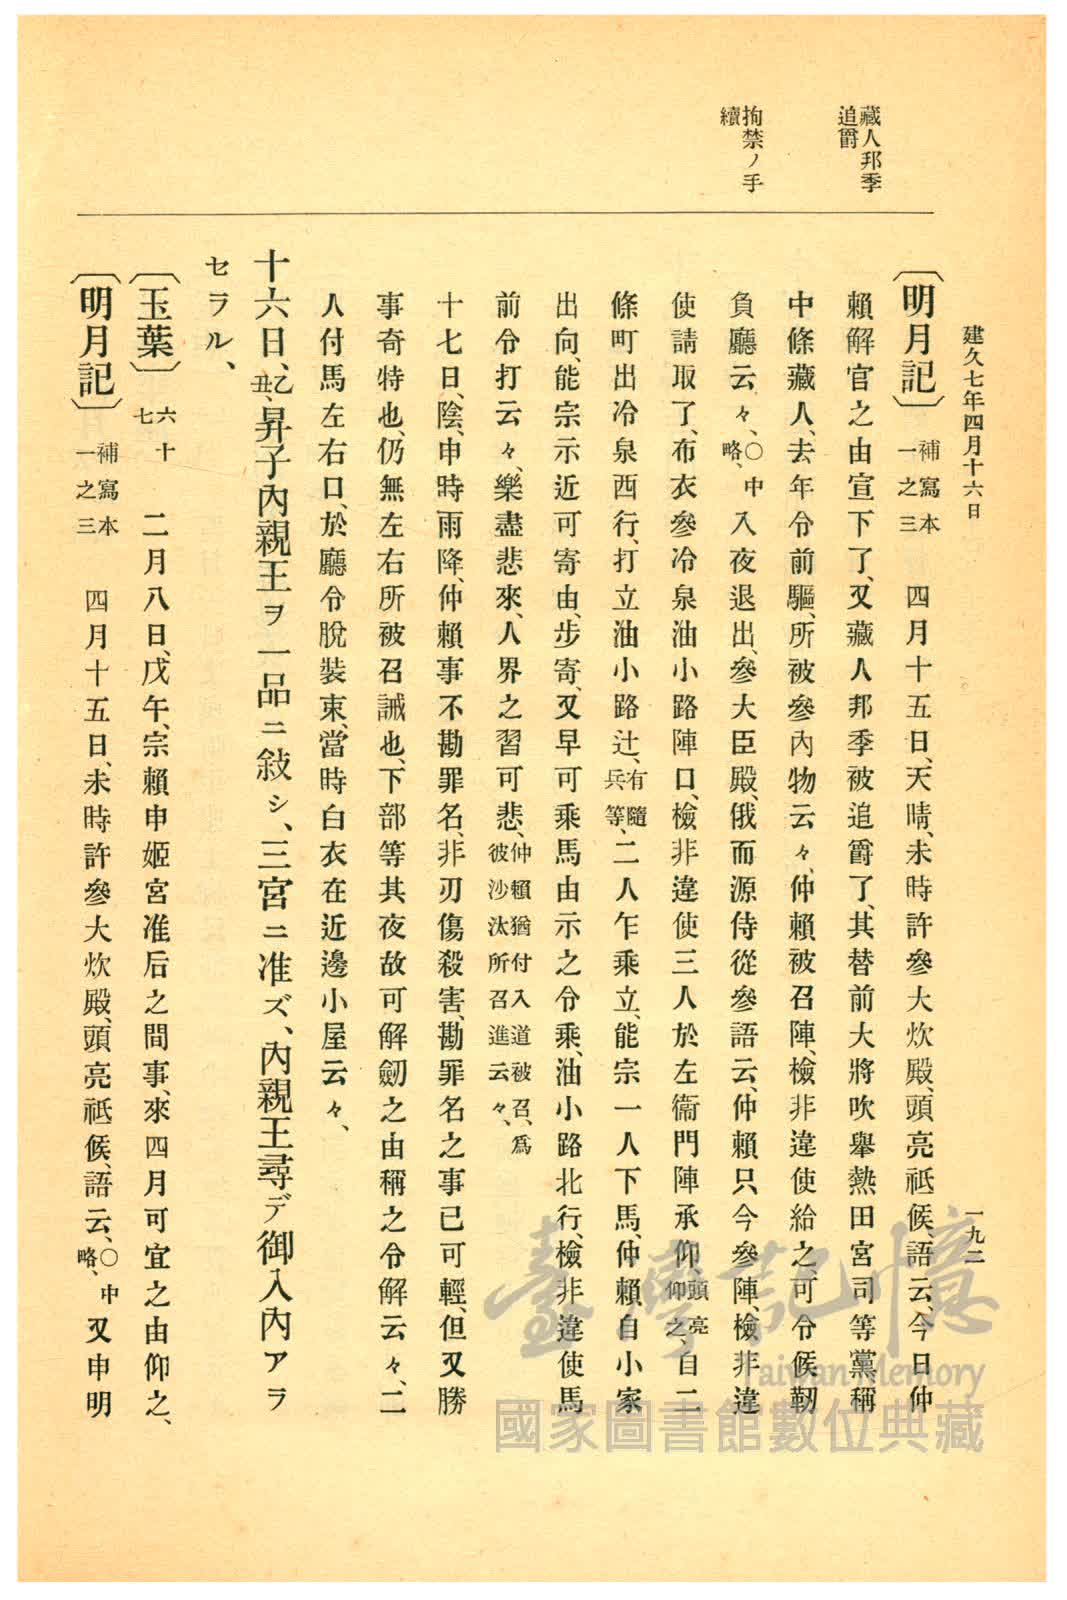 建久七年四月十六日
一九二
藏人邦季
追爵
拘禁ノ手
續
〔明月記〕補寫本一之三　四月十五日、天晴、未時許參大炊殿、頭亮祗候、語云、今日仲
賴解官之由宣下了、又藏人邦季被追爵了、其替前大將吹舉熱田宮司等黨稱
中條藏人、去年令前驅、所被參內物云々、仲賴被召陣、檢非違使給之、可令候靭
負廳云々、〇中略、入夜退出、參大臣殿、俄而源侍從參語云、仲賴只今參陣、檢非違
使請取了、布衣參冷泉油小路陣口、檢非違使三人於左衞門陣承仰、頭亮仰之、自二
條町出冷泉西行、打立油小路辻、有隨兵等、二人乍乘立、能宗一人下馬、仲賴自小家
出向、能宗示近可寄由、步寄、又早可乘馬由示之令乘、油小路北行、檢非違使馬
前令打云々、樂盡悲來、人界之習可悲、仲賴猶付入道被召、爲彼沙汰所召進云々、
十七日、陰、申時雨降、仲賴事不勘罪名、非刃傷殺害、勘罪名之事已可輕、但又勝
事奇特也、仍無左右所被召誡也、下部等其夜故可解劒之由稱之令解云々、二
人付馬左右口、於廳令脫裝束、當時白衣在近邊小屋云々、
十六日、乙丑、昇子內親王ヲ一品ニ敍シ、三宮ニ准ズ、內親王尋デ御入內アラ
セラル、
〔玉葉〕六十七　二月八日、戊午、宗賴申姬宮准后之間事、來四月可宜之由仰之、
〔明月記〕補寫本一之三　四月十五日、未時許參大炊殿、頭亮祗候、語云、〇中略、又申明
臺灣記憶
Taiwan Memory
國家圖書館數位典藏